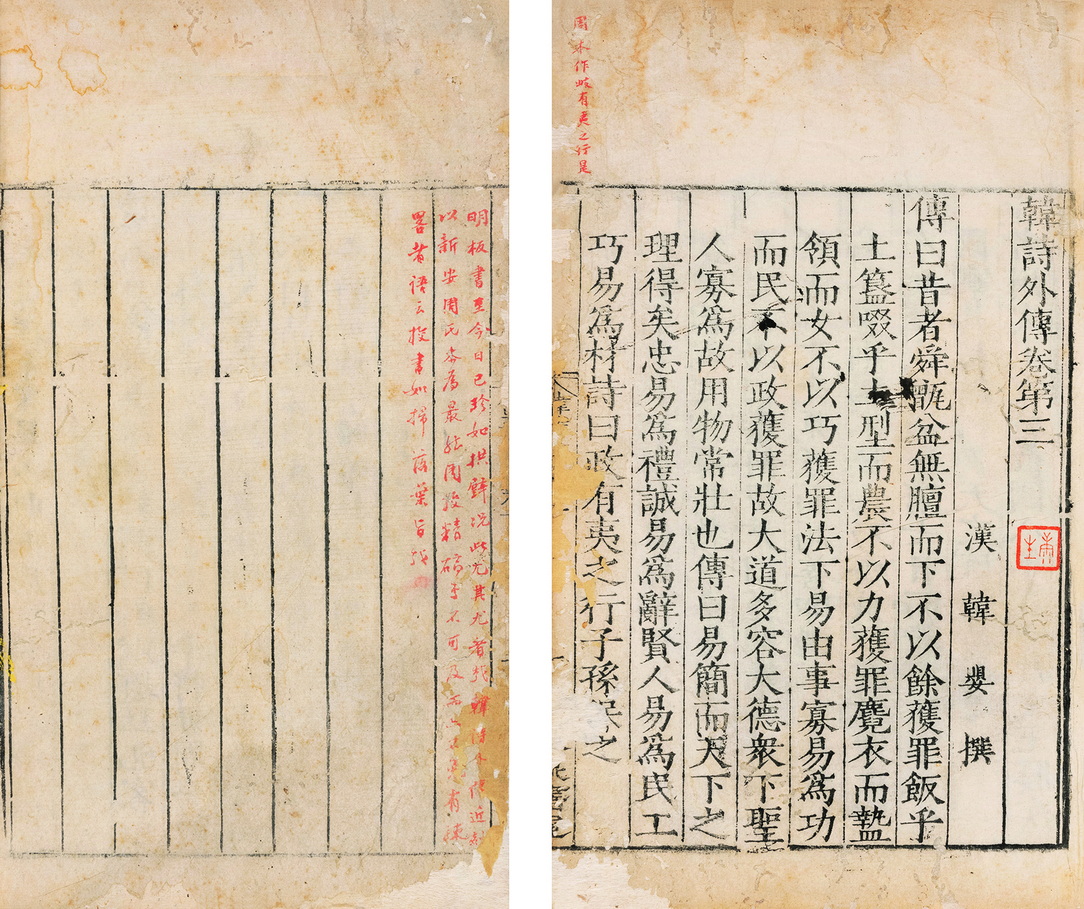 韓詩外傳卷第三
漢韓嬰撰
傳曰昔者舜甑盆無膻而下不以餘獲罪飯乎
土簋啜乎土型而農不以力獲罪麑衣而盩
領而女不以巧獲罪法下易由事寡易爲功
而民不以政獲罪故大道多容大德衆下聖
人寡爲故用物常壯也傳曰易簡而天下之
理得矣忠易爲禮誠易爲辭賢人易爲民工
巧易爲材詩曰政有夷之行子孫保之
周本作岐有夷之行是
明板書至今日已珍如拱璧況此尤其尤者哉韓詩外傳近
以新安周氏爲最然周校精確不可及而有疎
畧者語云校書如掃落葉旨哉